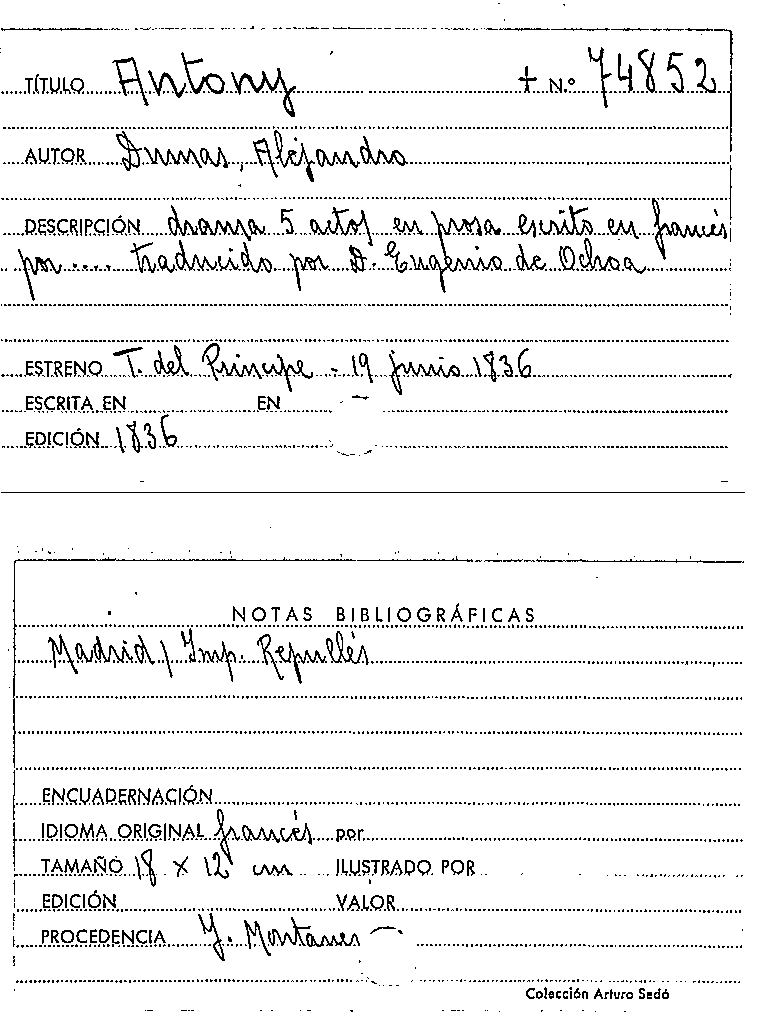 TÍTULO Antony + N.º 74852
AUTOR Dumas, Alejandro
DESCRIPCIÓN drama 5 actos en prosa escrito en francés
por .... traducido por D. Eugenio de Ochoa
ESTRENO T. del Principe - 19 junio 1836
ESCRITA EN EN
EDICIÓN 1836
NOTAS BIBLIOGRÁFICAS
Madrid / Imp. Repullés
ENCUADERNACIÓN
IDIOMA ORIGINAL francés por
TAMAÑO 18 x 12 cm ILUSTRADO POR
EDICIÓN VALOR
PROCEDENCIA Y. Montaner
Colección Arturo Sedó